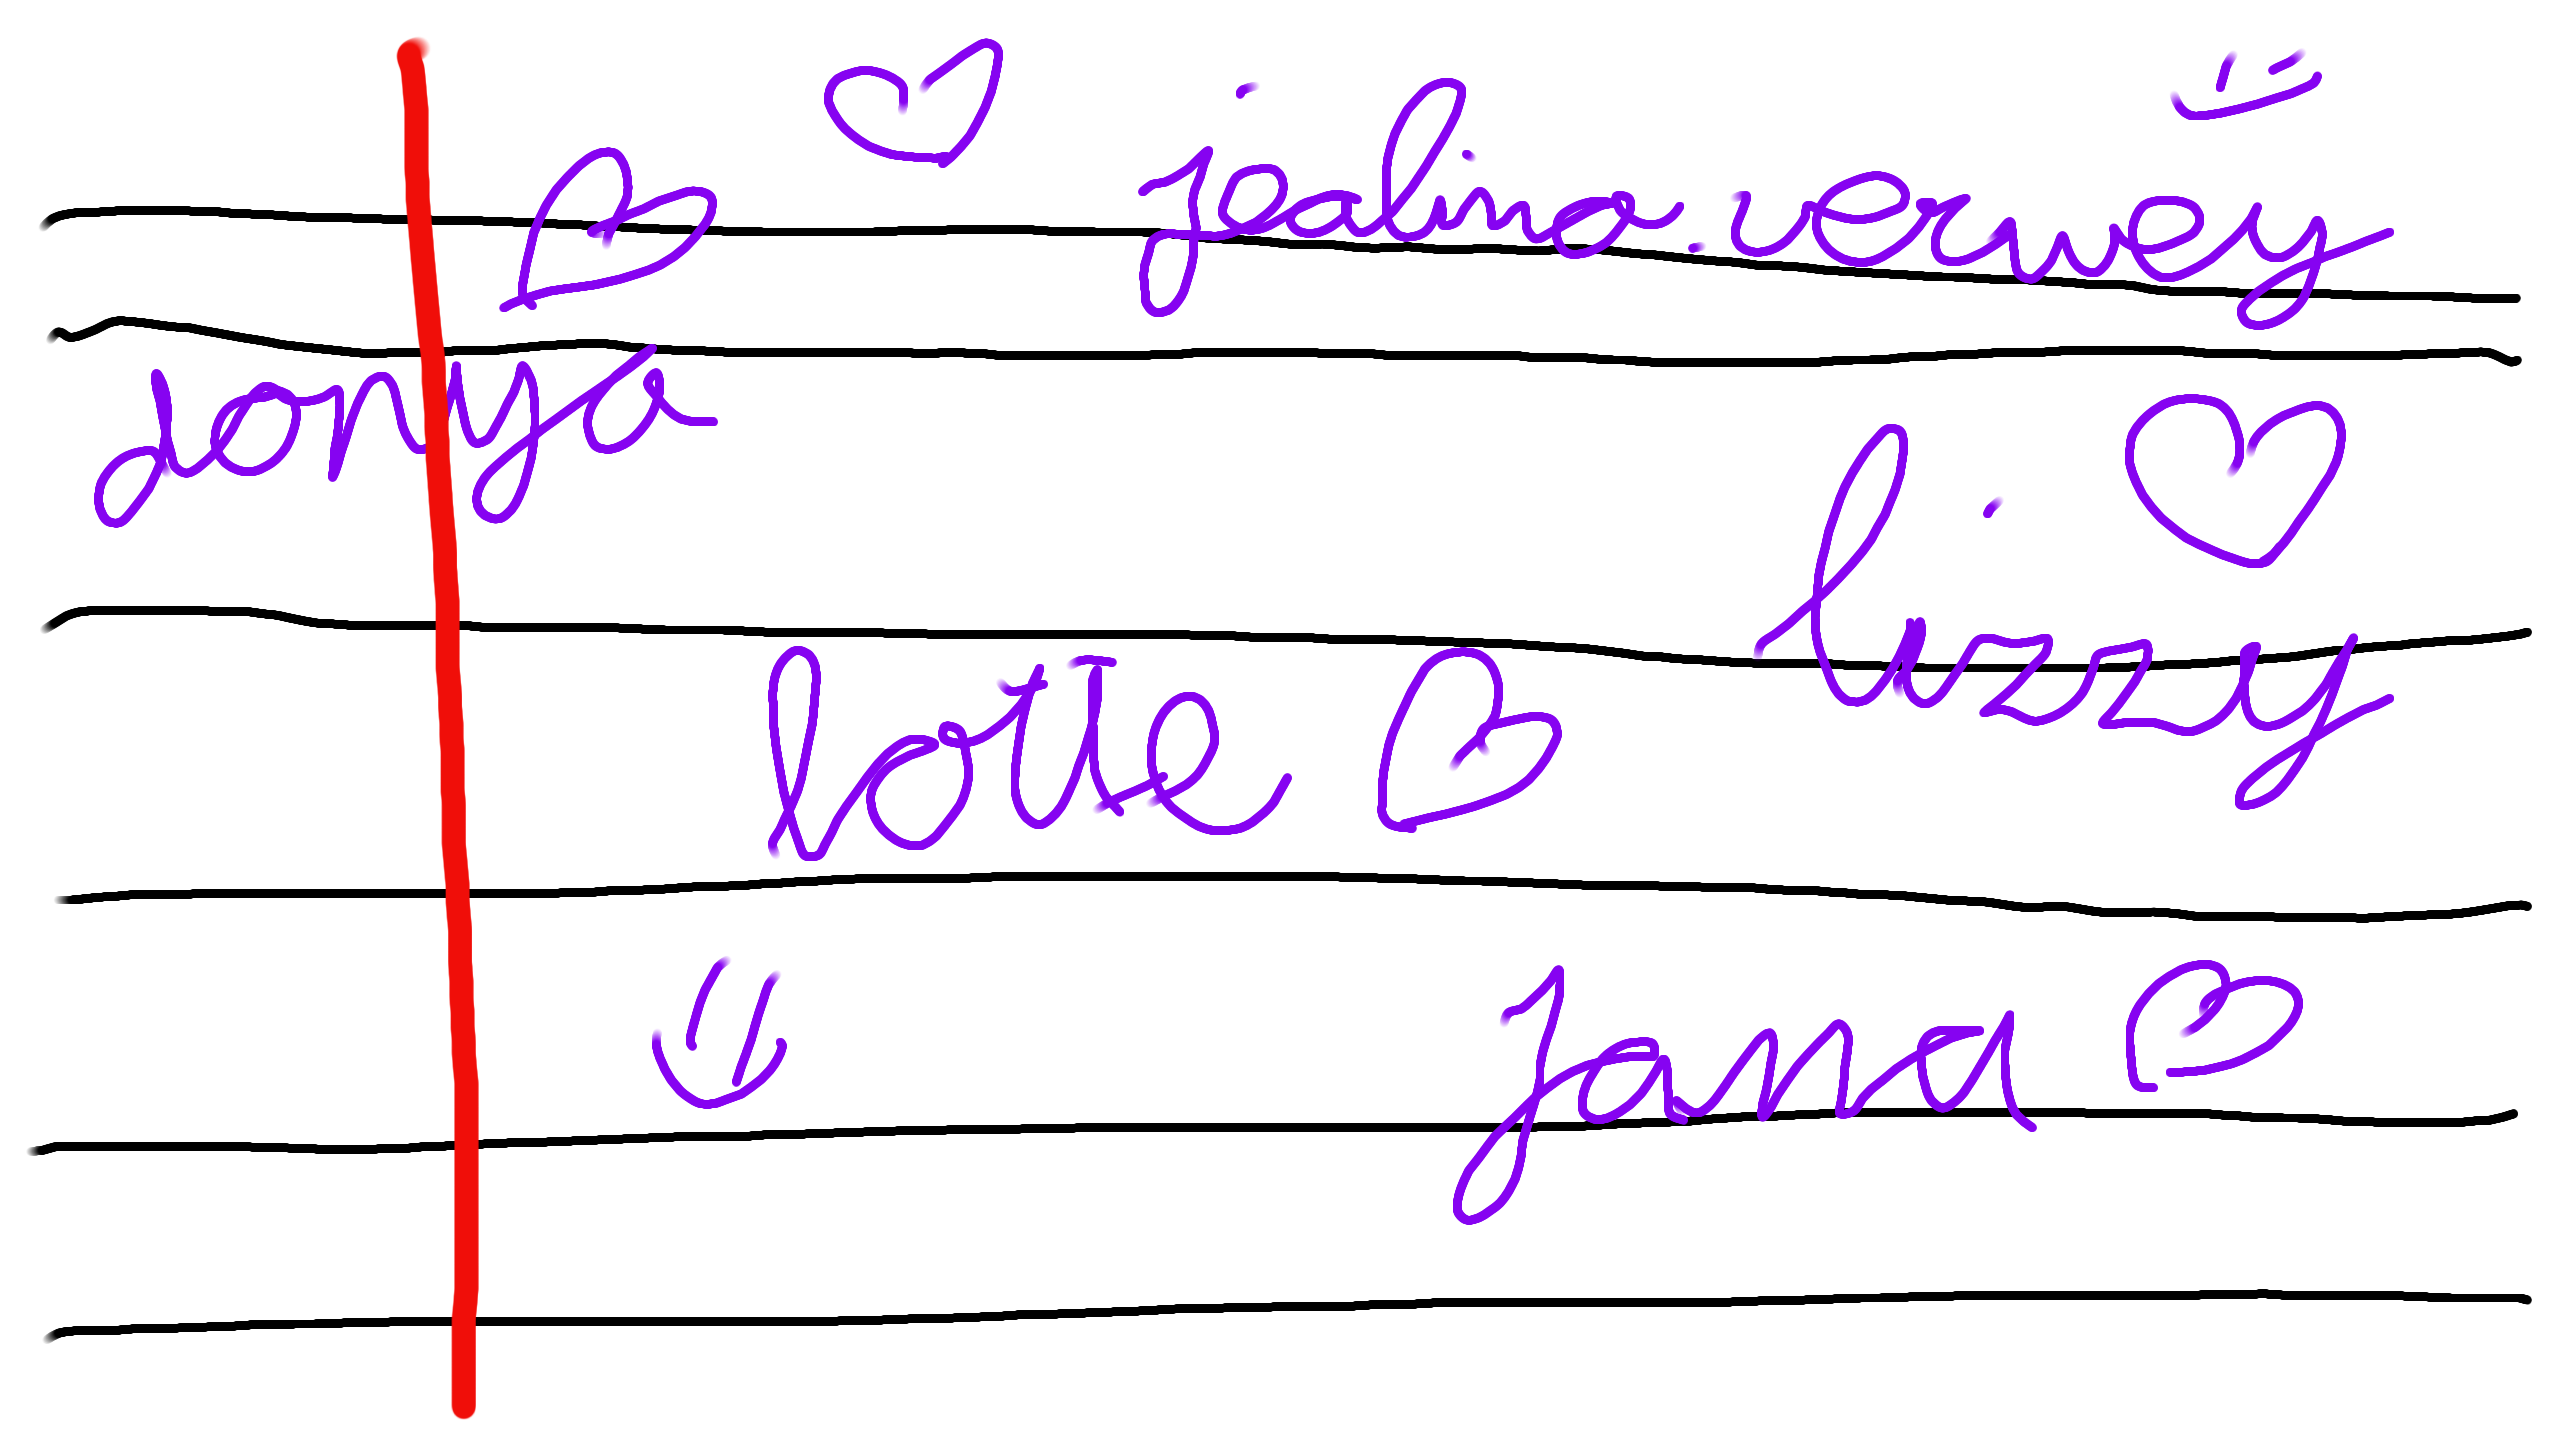 jealina.verwey
sonya
lizzy
lotte
Jana